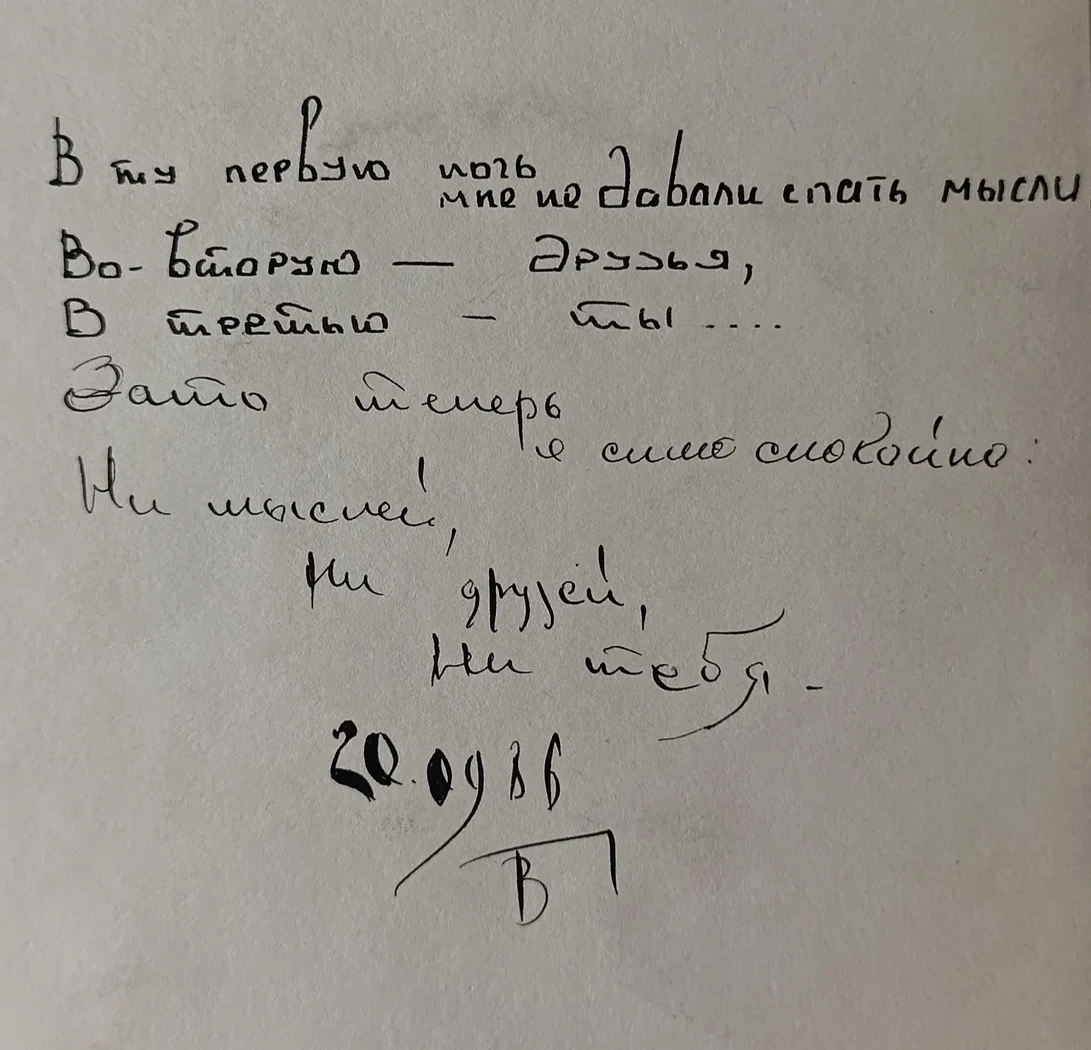 В ту первую ночь
мне не давали спать мысли
Во-вторую — друзья,
В третью – ты ....
Зато теперь
я сплю спокойно:
Ни мыслей,
Ни друзей,
Ни тебя -
20.09 86
В